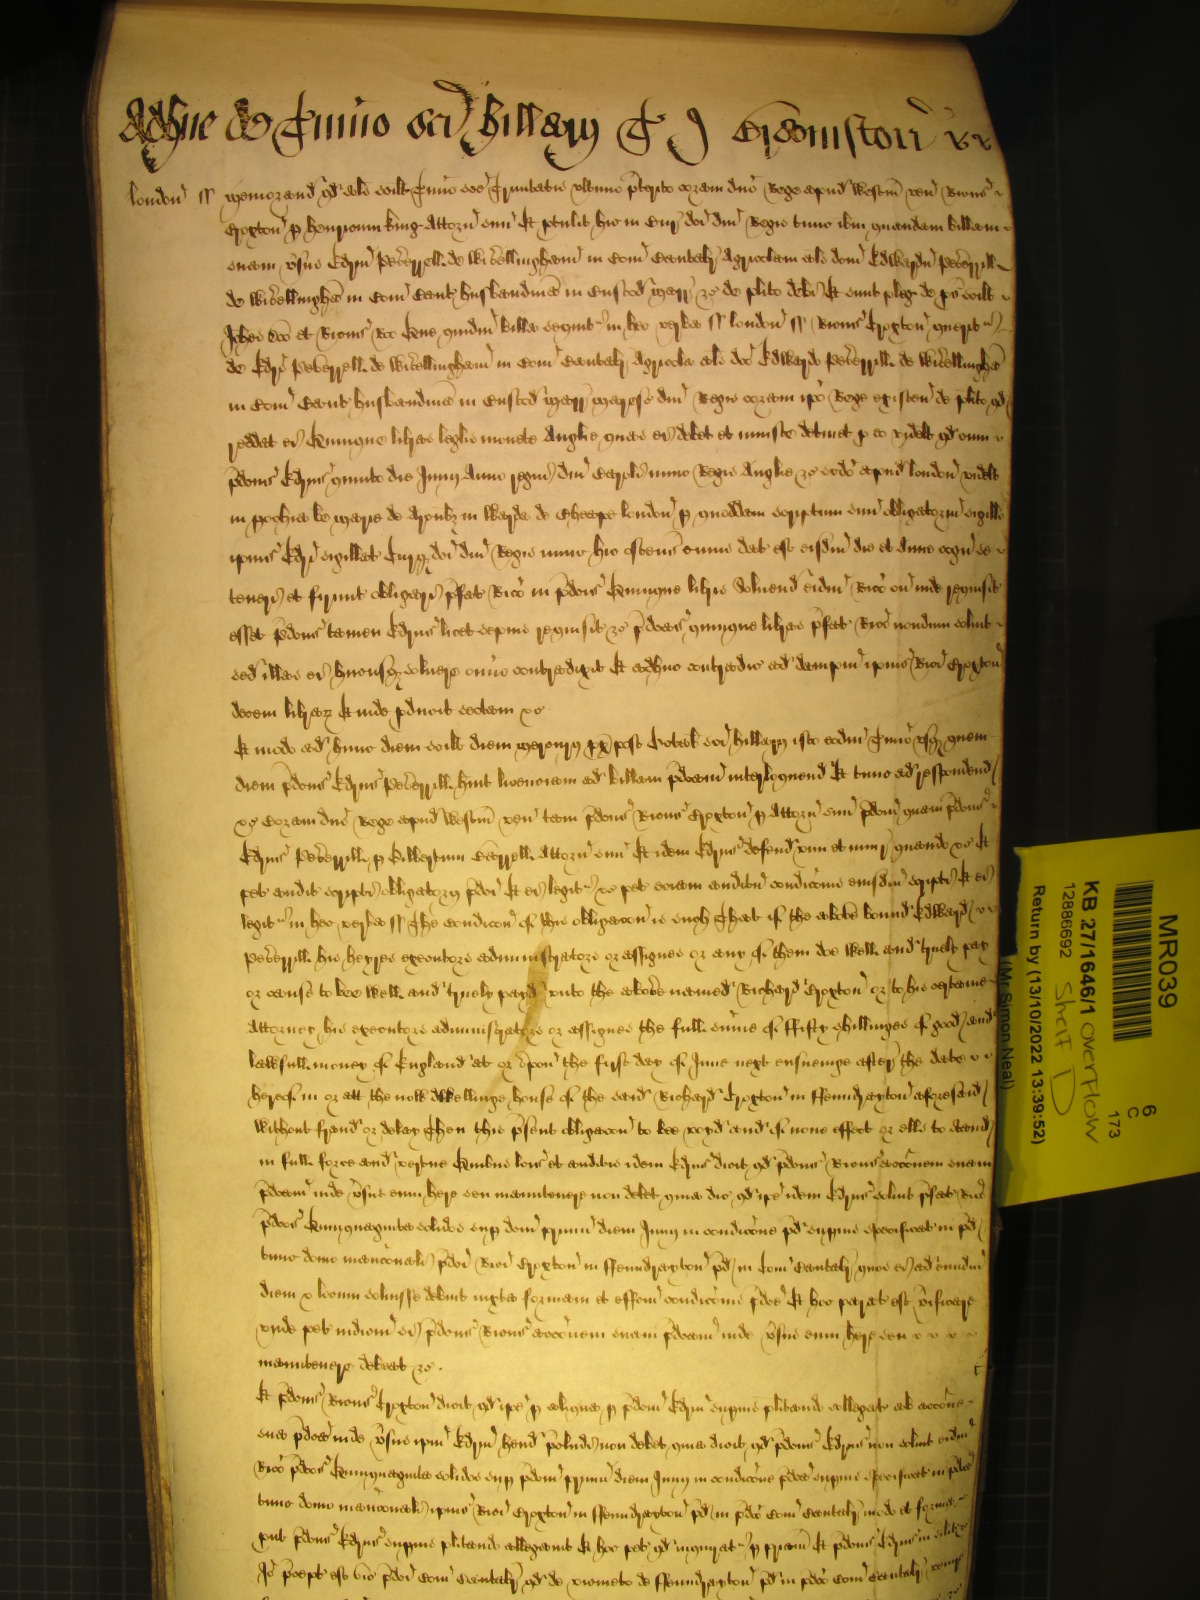 Adhuc de Termino sci Hillarij
London ss Memorand qd alias scilt Termino sce Trinitatis ultimo preterito coram dno Rege apud Westm ven Ricus
Croxton p Henricum King Attorn suu Et ptulit hic in Cur dci dni Regis tunc ibm quandam billam
suam vsus Edrum Peverell de in Com Cantabr Agricolam alias dcm Edwardu Peverill
de in Com Cant husbandman in Custod Marr &c de plito debi Et sunt pleg de ps scilt
Johes Doo et Ricus Roo Que quidem billa sequit in hec verba ss London ss Ricus Croxton querit
de Edro Peverell de in Com Cantabr Agricola alias dco Edwardo Peverill de
in Com Cant husbandman in Custod Marr Maresc dni Regis coram ipo Rege existen de plito qd
reddat ei Quinque libras legalis monete Anglie quas ei debet et iniuste detinet p eo videlt qd cum
pdcus Edrus quinto die Junij Anno regni dni Caroli nunc Regis Anglie &c apud London videlt
in pochia be Marie de Arcubz in Warda de Cheape London p quoddam scriptum suu obligatoriu sigillo
ipius Edri sigillat Curqz dci dni Regis nunc hic ostens cuius dat est eisdem die et Anno cogn se
teneri et firmit obligari pfat Rico in pdcis Quinque libris Solvend eidem Rico cu inde requisit
esset pdcus tamen Edrus licet sepius requisit &c pdcas quinque libras pfat Rico nondum solvit
sed illas ei hucusqz solvere omnino contradixit Et adhuc contradic ad dampnu ipius Rici Croxton
decem librarz Et inde pducit sectam &c
Et modo ad hunc diem scilt diem Mercurij px post Octab sci Hillarij isto eodem Termino usqz quem
diem pdcus Edrus Peverill huit licenciam ad billam pdcam interloquend Et tunc ad respondend
&c Coram dno Rege apud Westm ven tam pdcus Ricus Croxton p Attorn suu pdcm quam pdcus
Edrus Peverill p Gilbertum Attorn suu Et idem Edrus defend vim et iniur quando &c Et
pet audit scripti obligatorij pdci Et ei legit &c pet eciam auditu condicionis eiusdem scripti Et ei
legit in hec verba ss The condicon of this obligacon is such That if the above bound Edward
Peverill his heyres executors administrators or assignes or any of them doe well and truely pay
or cause to bee well and truely payd unto the above named Richard Croxton or to his certaine
Attorney his executors administrators or assignes the full sume of ffifty shillinges of good and
lawfull money of England at or upon the first day of June next ensueinge after the date
hereof in or att the now dwellinge house of the said Richard Croxton in ffendrayton aforesaid
without fraud or delay Then this psent obligacon to bee voyd and of none effect or ells to stand
in full force and vertue Quibus lectis et auditis idem Edrus dicit qd pdcus Ricus accionem suam
pdcam inde vsus eum here seu manutenere non debet quia dic qd ipe idem Edrus solvit pfat Rico
pdcos Quinquaginta solidos sup dcm primu diem Junij in condicione pd supius specificat in pd
tunc domo mancionali pdci Rici Croxton in ffendrayton pd in Com Cantabr quos ei ad eundem
diem & locum solvisse debuit iuxta formam et effcm condicionis pdce Et hoc parat est verificare
unde pet iudicm si pdcus Ricus accionem suam pdcam inde vsus eum here seu
manutenere debeat &c.
Et pdcus Ricus Croxton dicit qd ipe p aliqua p pdcm Edrum supius plitando allegat ab accione
sua pdca inde vsus ipm Edrum hend pcludi non debet quia dicit qd pdcus Edrus non solvit eidem
Rico pdcos Quinquaginta solidos sup pdcm primu diem Junij in condicione pdca supius specificat in pdca
tunc domo mancionali ipius Rici Croxton in ffendrayton pd in pdco Com Cantabr modo et forma
put pdcus Edrus supius plitando allegavit Et hoc pet qd inquirat p priam Et pdcus Edrus
Jo pcept est vic pdci Com Cantabr qd de vicineto de ffendrayton pd in pdco Com Cantabr
MR039
6
C
173
KB 27/1646/1 OVERFLOW
12886692 Shelf D
Return by (13/10/2022 13:39:52)
(Mr Simon Neal)